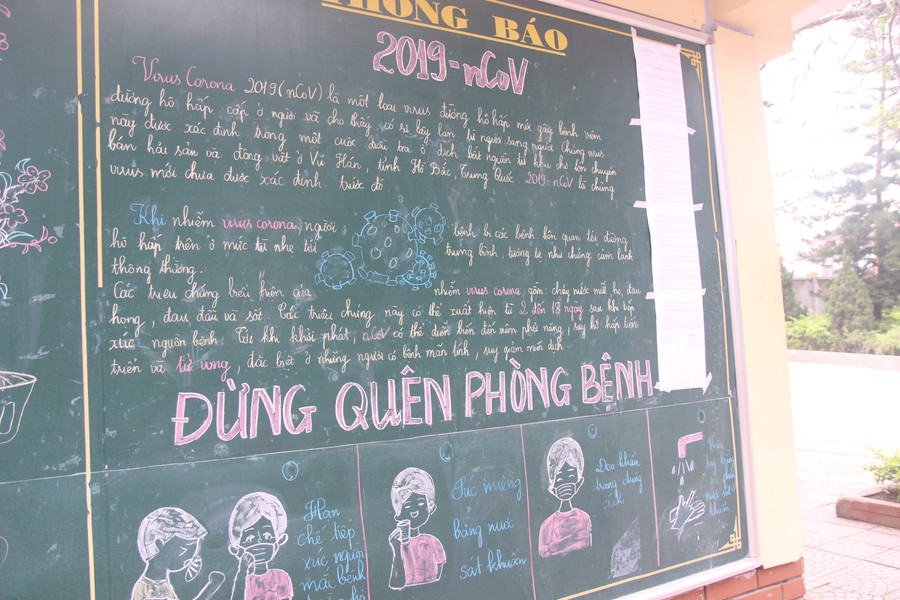 THÔNG BÁO
2019-nCoV
Virus Corona 2019 (nCoV) là một loại virus đường hô hấp mới gây bệnh viêm
đường hô hấp cấp ở người và cho thấy có sự lây lan từ người sang người. Chủng virus
này được xác định trong một cuộc điều tra ổ dịch bắt nguồn từ khu chợ lớn chuyên
bán hải sản và động vật ở Vũ Hán, tỉnh Hồ Bắc, Trung Quốc. 2019-nCoV là chủng
virus mới chưa được xác định trước đó
Khi nhiễm virus corona, người bệnh bị các bệnh liên quan tới đường
hô hấp trên ở mức từ nhẹ tới trung bình, tương tự như chứng cảm lạnh
thông thường.
Các triệu chứng biểu hiện của nhiễm virus corona, gồm: chảy nước mũi, ho, đau
họng, đau đầu và sốt. Các triệu chứng này có thể xuất hiện từ 2 đến 18 ngày sau khi tiếp
xúc nguồn bệnh. Từ khi khởi phát, nCoV có thể diễn biến đến viêm phổi nặng, suy hô hấp tiến
triển và tử vong, đặc biệt ở những người có bệnh mãn tính, suy giảm miễn dịch.
ĐỪNG QUÊN PHÒNG BỆNH
Hạn
chế tiếp
xúc người
mắc bệnh
Súc miệng
bằng nước
sát khuẩn
Đeo khẩu
trang đúng
cách
Rửa
tay bằng
khuẩn